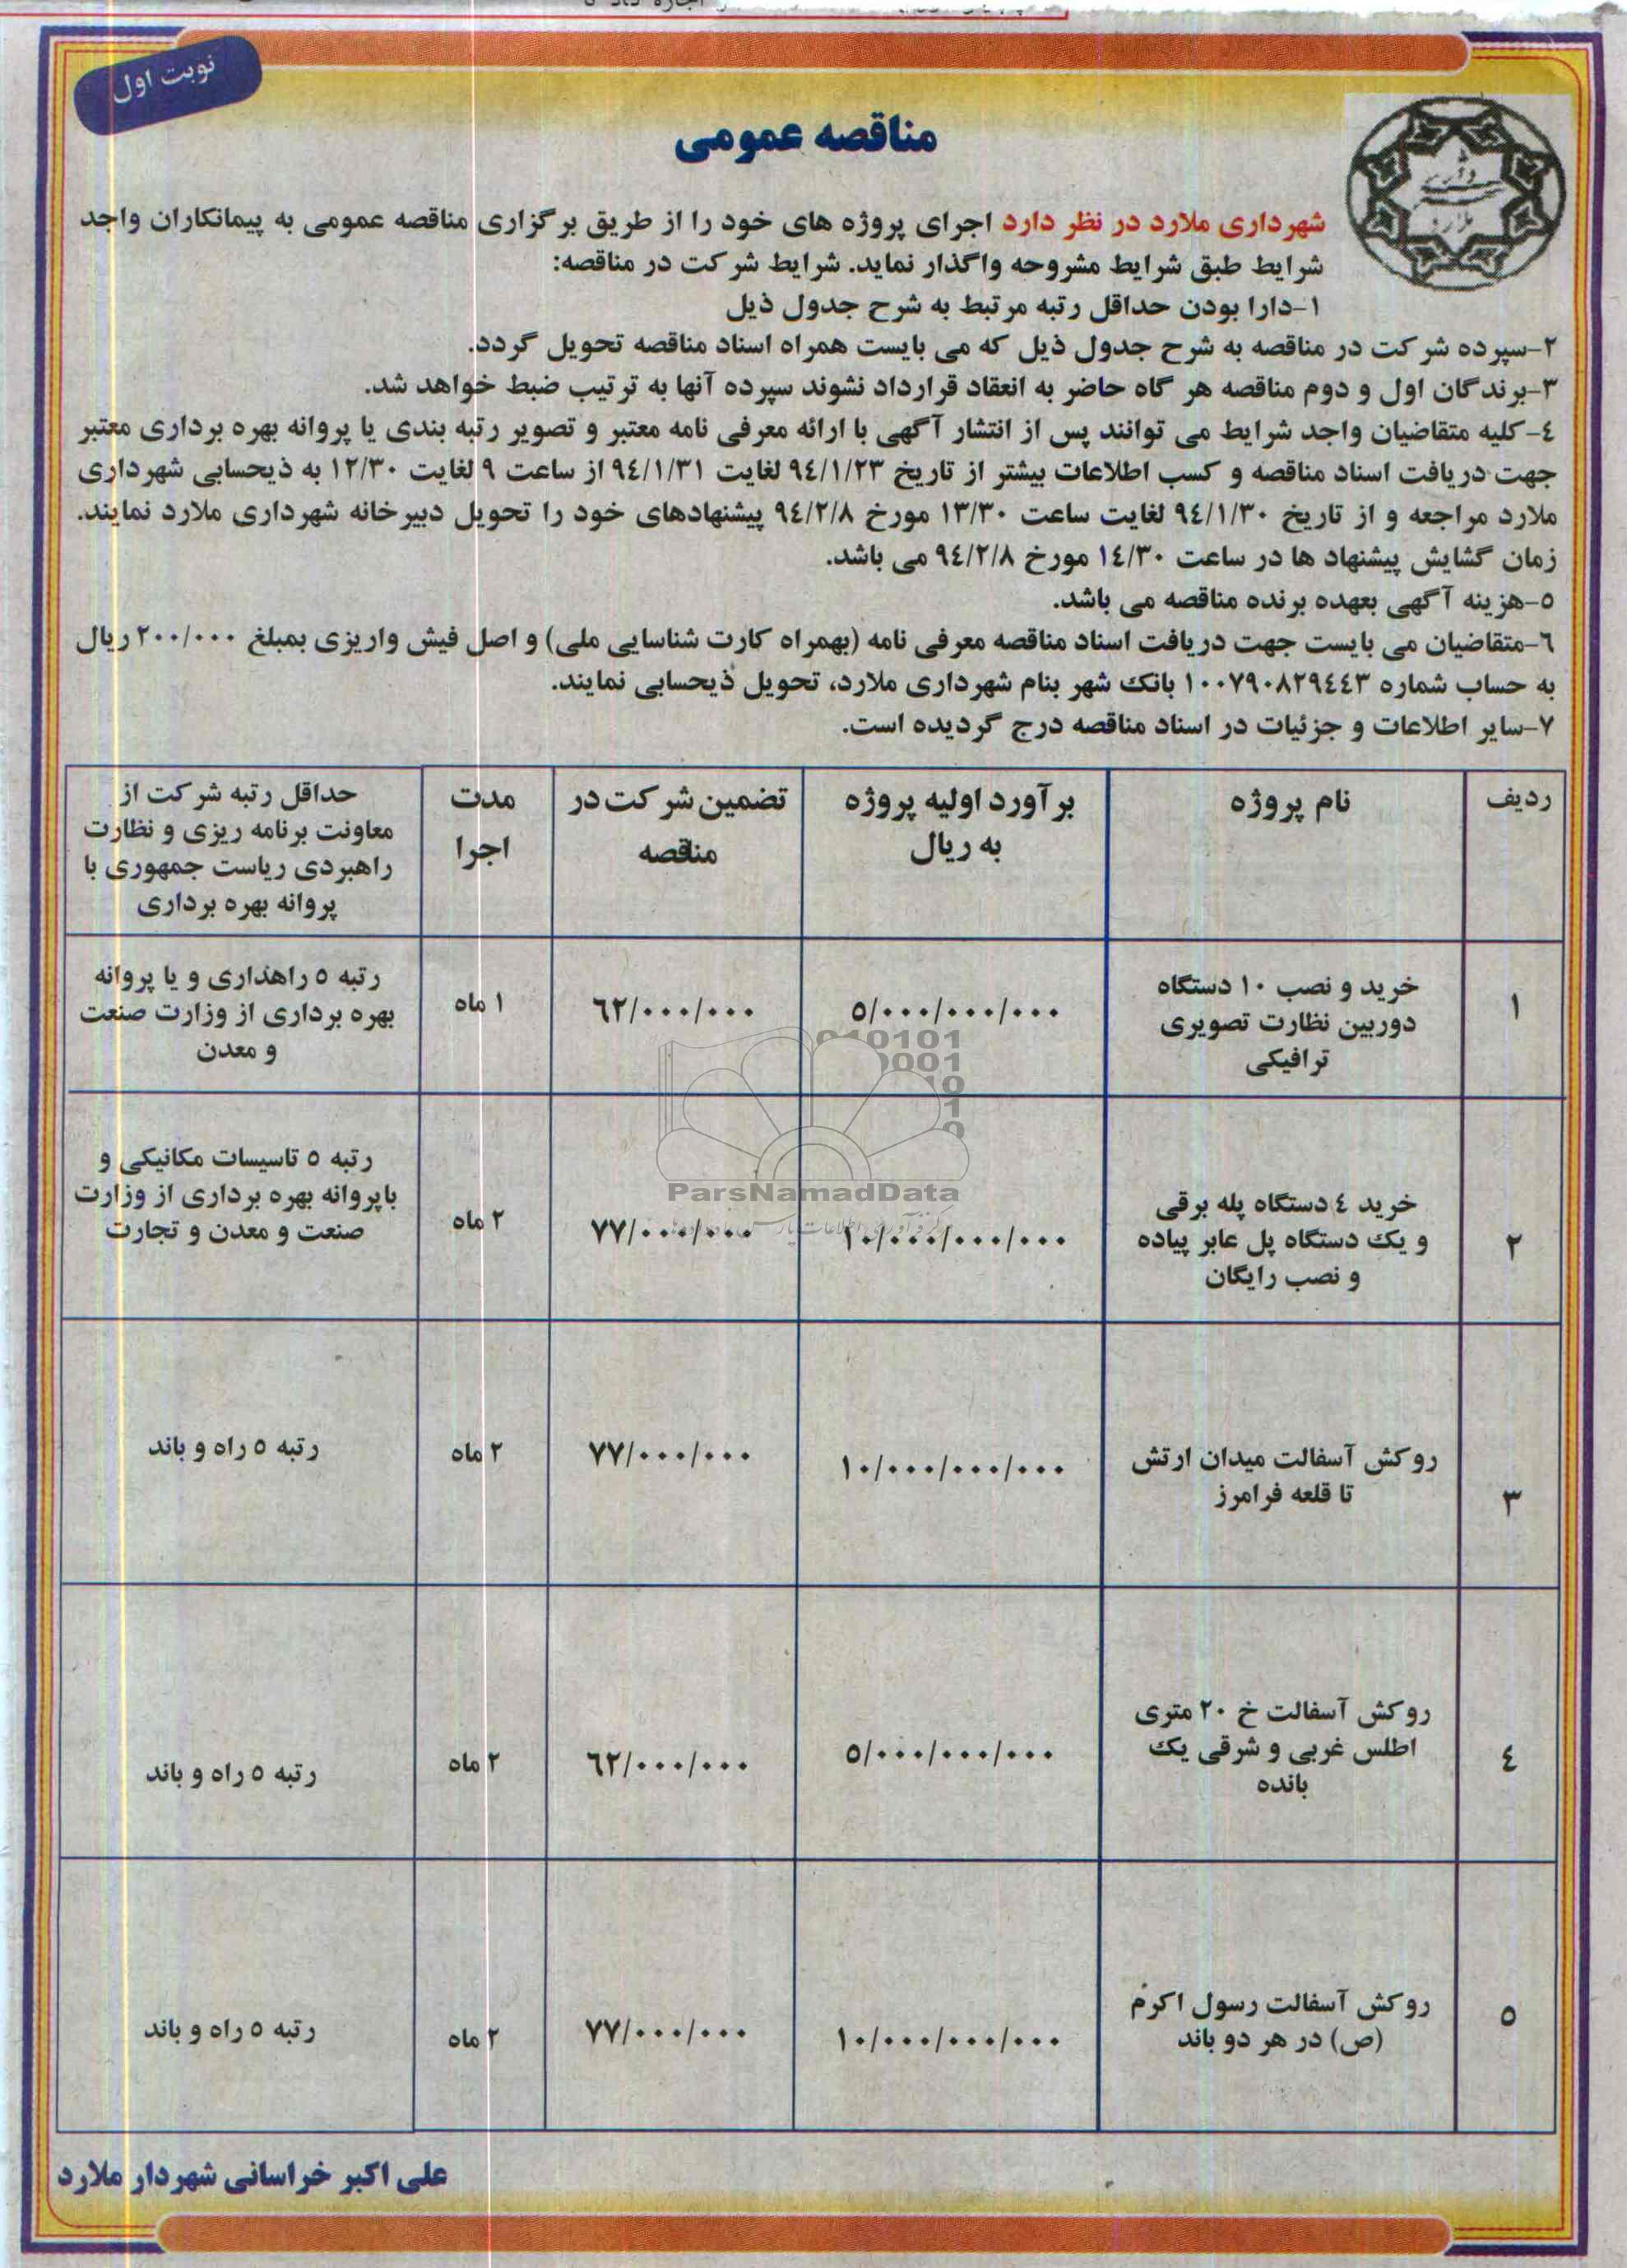 نوبت اول
مناقصه عمومی
شهرداری ملارد در نظر دارد اجرای پروژه های خود را از طریق برگزاری مناقصه عمومی به پیمانکاران واجد
شرایط طبق شرایط مشروحه واگذار نماید. شرایط شرکت در مناقصه:
۱-دارا بودن حداقل رتبه مرتبط به شرح جدول ذیل
۲-سپرده شرکت در مناقصه به شرح جدول ذیل که می بایست همراه اسناد مناقصه تحویل گردد.
۳-برندگان اول و دوم مناقصه هر گاه حاضر به انعقاد قرارداد نشوند سپرده آنها به ترتیب ضبط خواهد شد.
٤-کلیه متقاضیان واجد شرایط می توانند پس از انتشار آگهی با ارائه معرفی نامه معتبر و تصویر رتبه بندی یا پروانه بهره برداری معتبر
جهت دریافت اسناد مناقصه و کسب اطلاعات بیشتر از تاریخ ۹٤/۱/۲۳ لغایت ۹٤/۱/۳۱ از ساعت ۹ لغایت ۱۲/۳۰ به ذیحسابی شهرداری
ملارد مراجعه و از تاریخ ۹٤/۱/۳۰ لغایت ساعت ۱۳/۳۰ مورخ ۹٤/۲/۸ پیشنهادهای خود را تحویل دبیرخانه شهرداری ملارد نمایند.
زمان گشایش پیشنهاد ها در ساعت ۱٤/۳۰ مورخ ۹٤/۲/۸ می باشد.
٥-هزینه آگهی بعهده برنده مناقصه می باشد.
٦-متقاضیان می بایست جهت دریافت اسناد مناقصه معرفی نامه (بهمراه کارت شناسایی ملی) و اصل فیش واریزی بمبلغ ۲۰۰/۰۰۰ ریال
به حساب شماره ۱۰۰۷۹۰۸۲۹٤٤۳ بانک شهر بنام شهرداری ملارد، تحویل ذیحسابی نمایند.
۷-سایر اطلاعات و جزئیات در اسناد مناقصه درج گردیده است.
ردیف
نام پروژه
برآورد اولیه پروژه
به ریال
تضمین شرکت در
مناقصه
مدت
اجرا
حداقل رتبه شرکت از
معاونت برنامه ریزی و نظارت
راهبردی ریاست جمهوری با
پروانه بهره برداری
۱
خرید و نصب ۱۰ دستگاه
دوربین نظارت تصویری
ترافیکی
٥/۰۰۰/۰۰۰/۰۰۰
٦۲/۰۰۰/۰۰۰
۱ ماه
رتبه ٥ راهداری و یا پروانه
بهره برداری از وزارت صنعت
و معدن
۲
خرید ٤ دستگاه پله برقی
و یک دستگاه پل عابر پیاده
و نصب رایگان
۱۰/۰۰۰/۰۰۰/۰۰۰
۷۷/۰۰۰/۰۰۰
۲ ماه
رتبه ٥ تاسیسات مکانیکی و
باپروانه بهره برداری از وزارت
صنعت و معدن و تجارت
ParsNamadData
۳
روکش آسفالت میدان ارتش
تا قلعه فرامرز
۱۰/۰۰۰/۰۰۰/۰۰۰
۷۷/۰۰۰/۰۰۰
۲ ماه
رتبه ٥ راه و باند
٤
روکش آسفالت خ ۲۰ متری
اطلس غربی و شرقی یک
بانده
٥/۰۰۰/۰۰۰/۰۰۰
٦۲/۰۰۰/۰۰۰
۲ ماه
رتبه ٥ راه و باند
٥
روکش آسفالت رسول اکرم
(ص) در هر دو باند
۱۰/۰۰۰/۰۰۰/۰۰۰
۷۷/۰۰۰/۰۰۰
۲ ماه
رتبه ٥ راه و باند
علی اکبر خراسانی شهردار ملارد